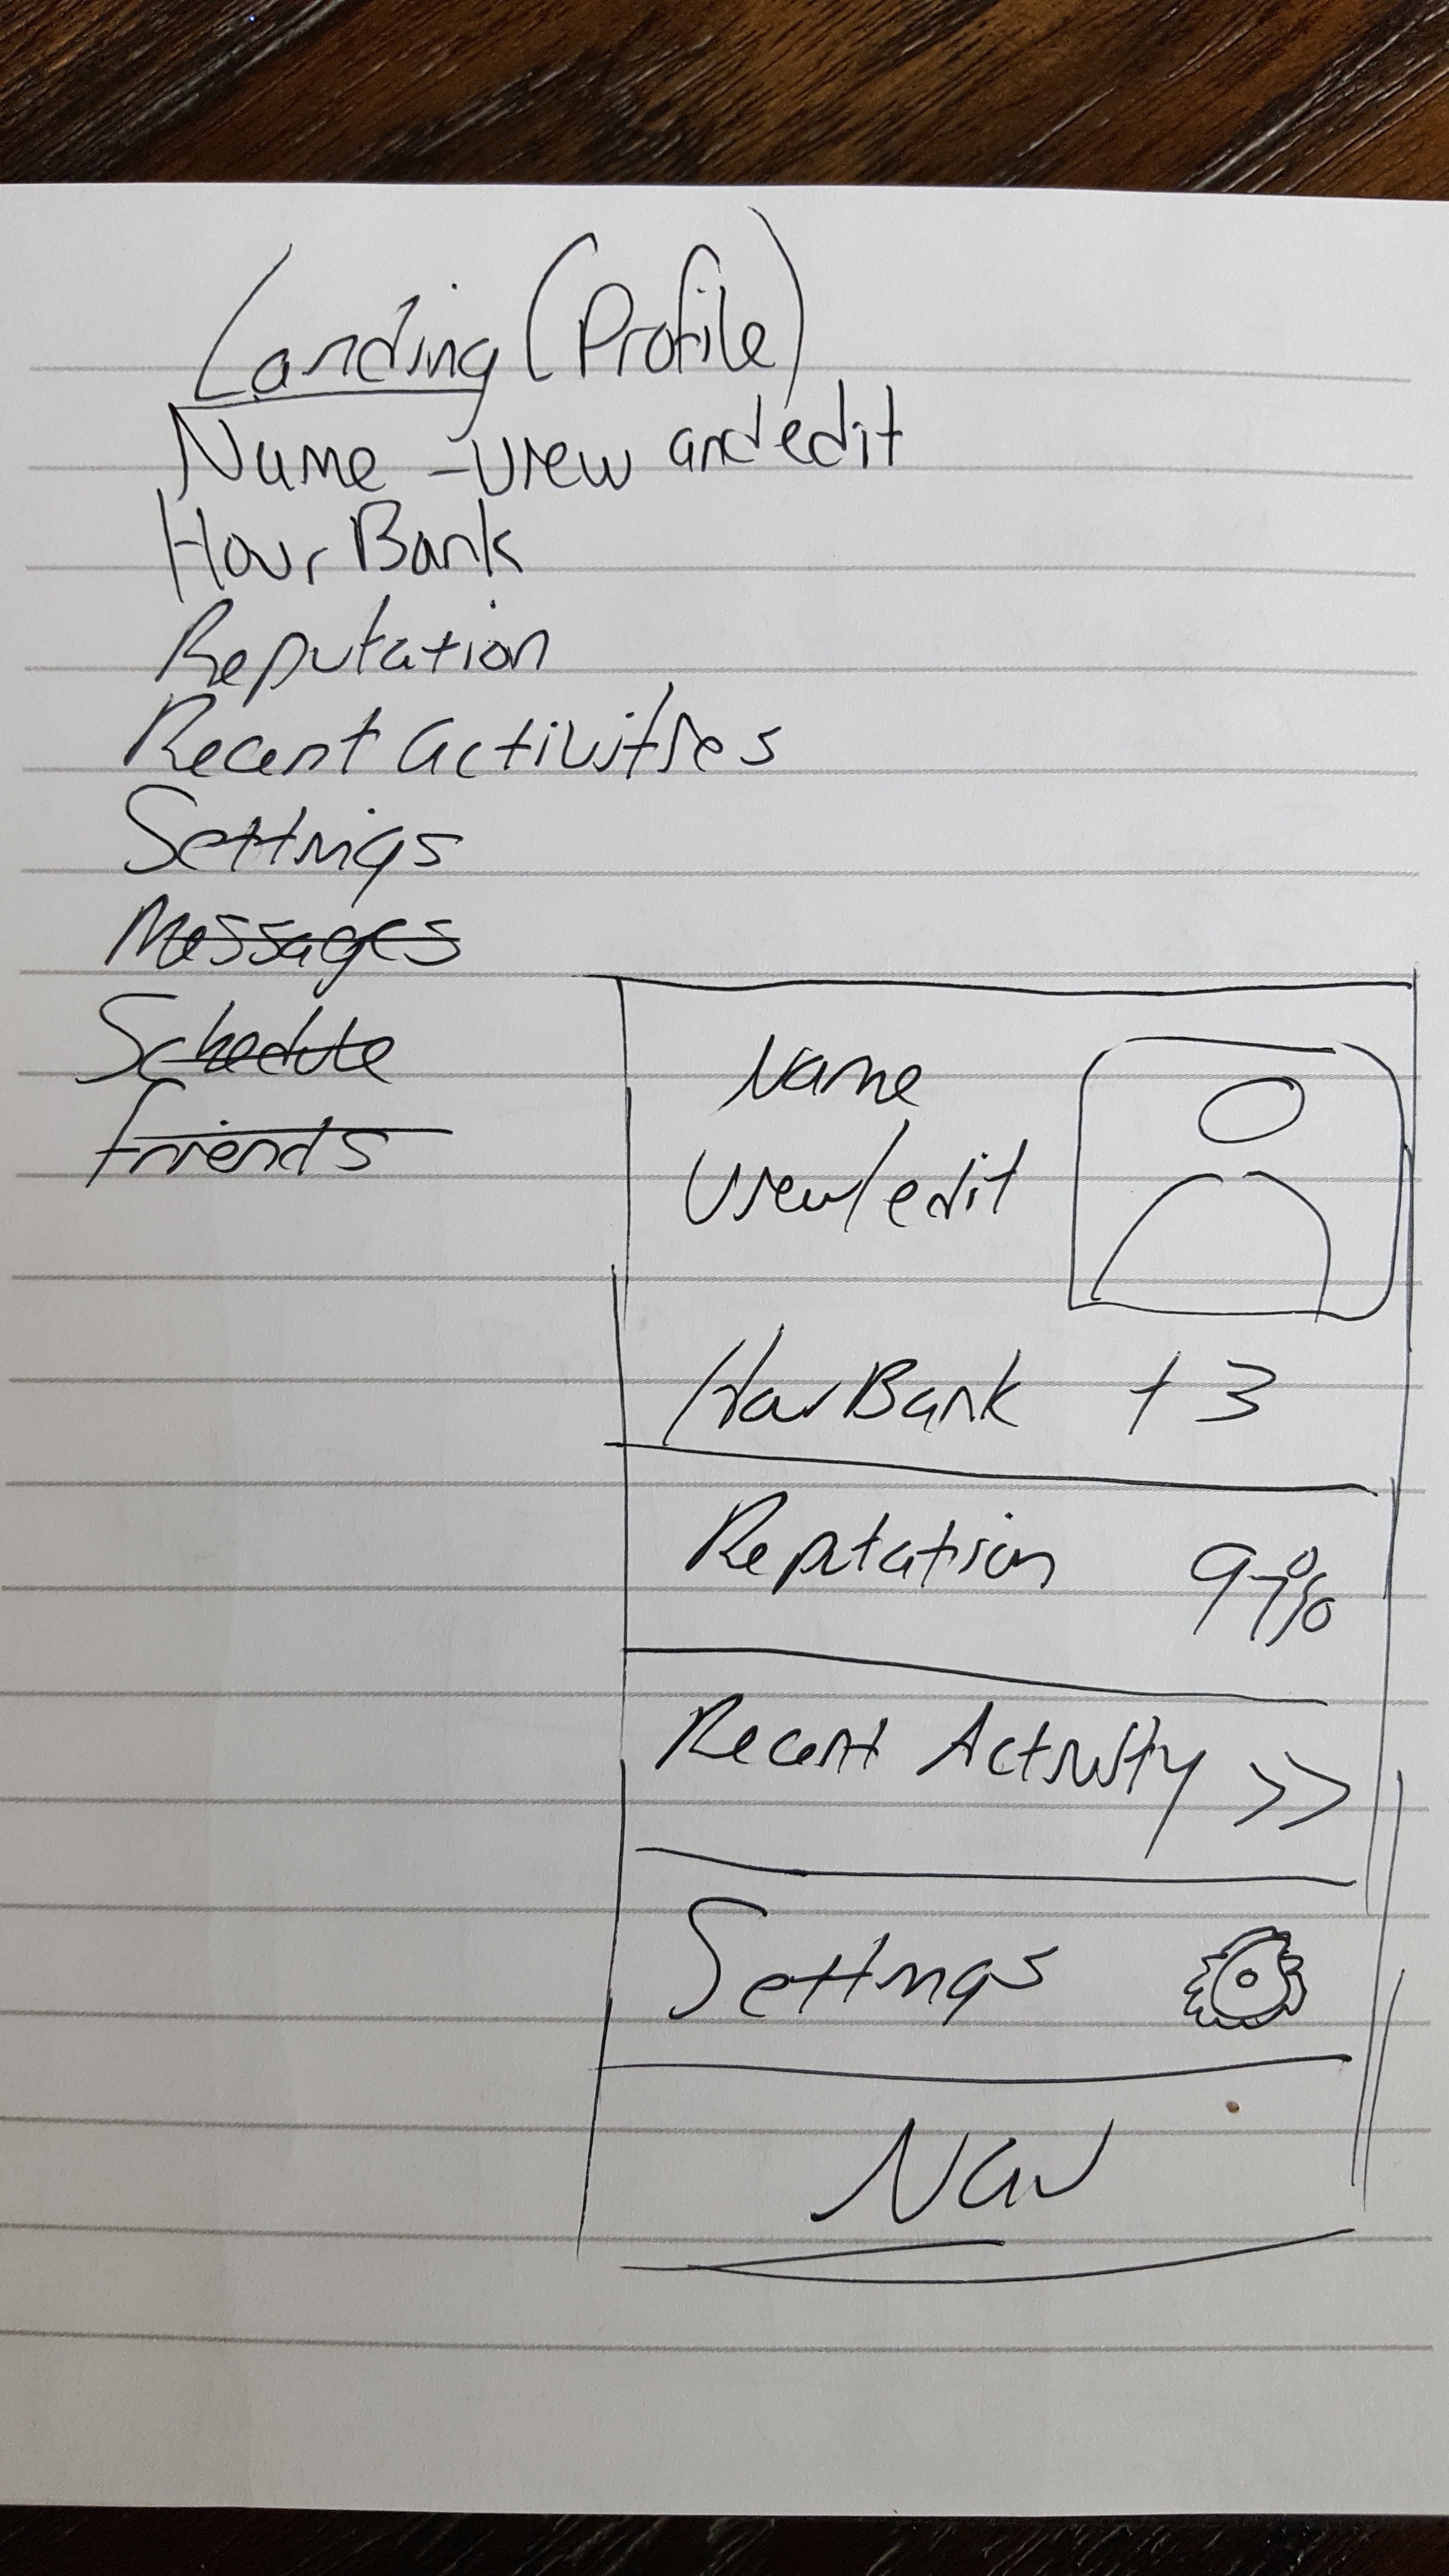 Landing (Profile)
Name - view and edit
Hour Bank
Reputation
Recent activities
Settings
Messages
Schedule
Friends
Name
View/edit
Hour Bank + 3
Reputation 97%
Recent Activity >>
Settings
Nav